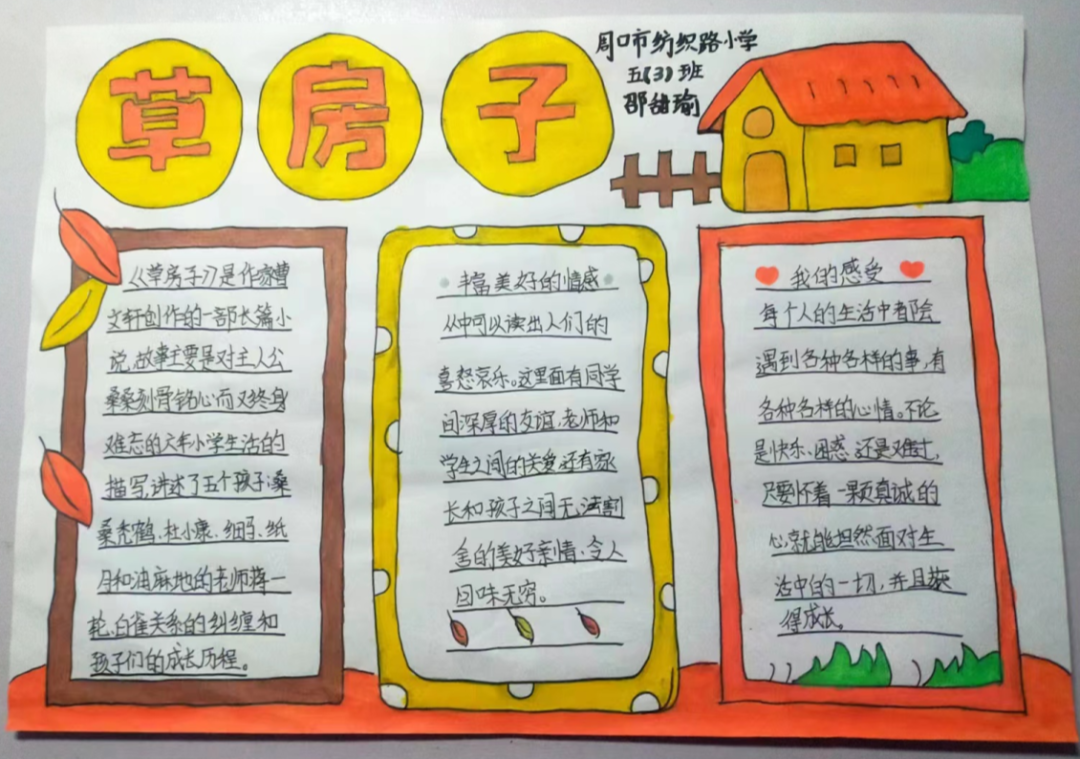 草房子
周口市纺织路小学
五(3)班
邵甜瑜
《草房子》是作家曹
文轩创作的一部长篇小
说,故事主要是对主人公
桑桑刻骨铭心而又终身
难忘的六年小学生活的
描写,讲述了五个孩子桑
桑秃鹤、杜小康、细马、纸
月和油麻地的老师蒋一
轮、白雀关系的纠缠和
孩子们的成长历程。
丰富美好的情感
从中可以读出人们的
喜怒哀乐。这里面有同学
间深厚的友谊,老师和
学生之间的关爱,还有家
长和孩子之间无法割
舍的美好亲情、令人
回味无穷。
我的感受
每个人的生活中者除会
遇到各种各样的事,有
各种各样的心情。不论
是快乐、困惑、还是难过,
只要怀着一颗真诚的
心,就能坦然面对生
活中的一切,并且获
得成长。